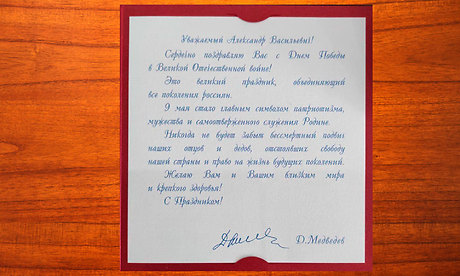 Уважаемый Александр Васильевич!
Сердечно поздравляю Вас с Днем Победы
в Великой Отечественной войне!
Это великий праздник, объединяющий
все поколения россиян.
9 мая стало главным символом патриотизма,
мужества и самоотверженного служения Родине.
Никогда не будет забыт бессмертный подвиг
наших отцов и дедов, отстоявших свободу
нашей страны и право на жизнь будущих поколений.
Желаю Вам и Вашим близким мира
и крепкого здоровья!
С Праздником!
Д.Медведев